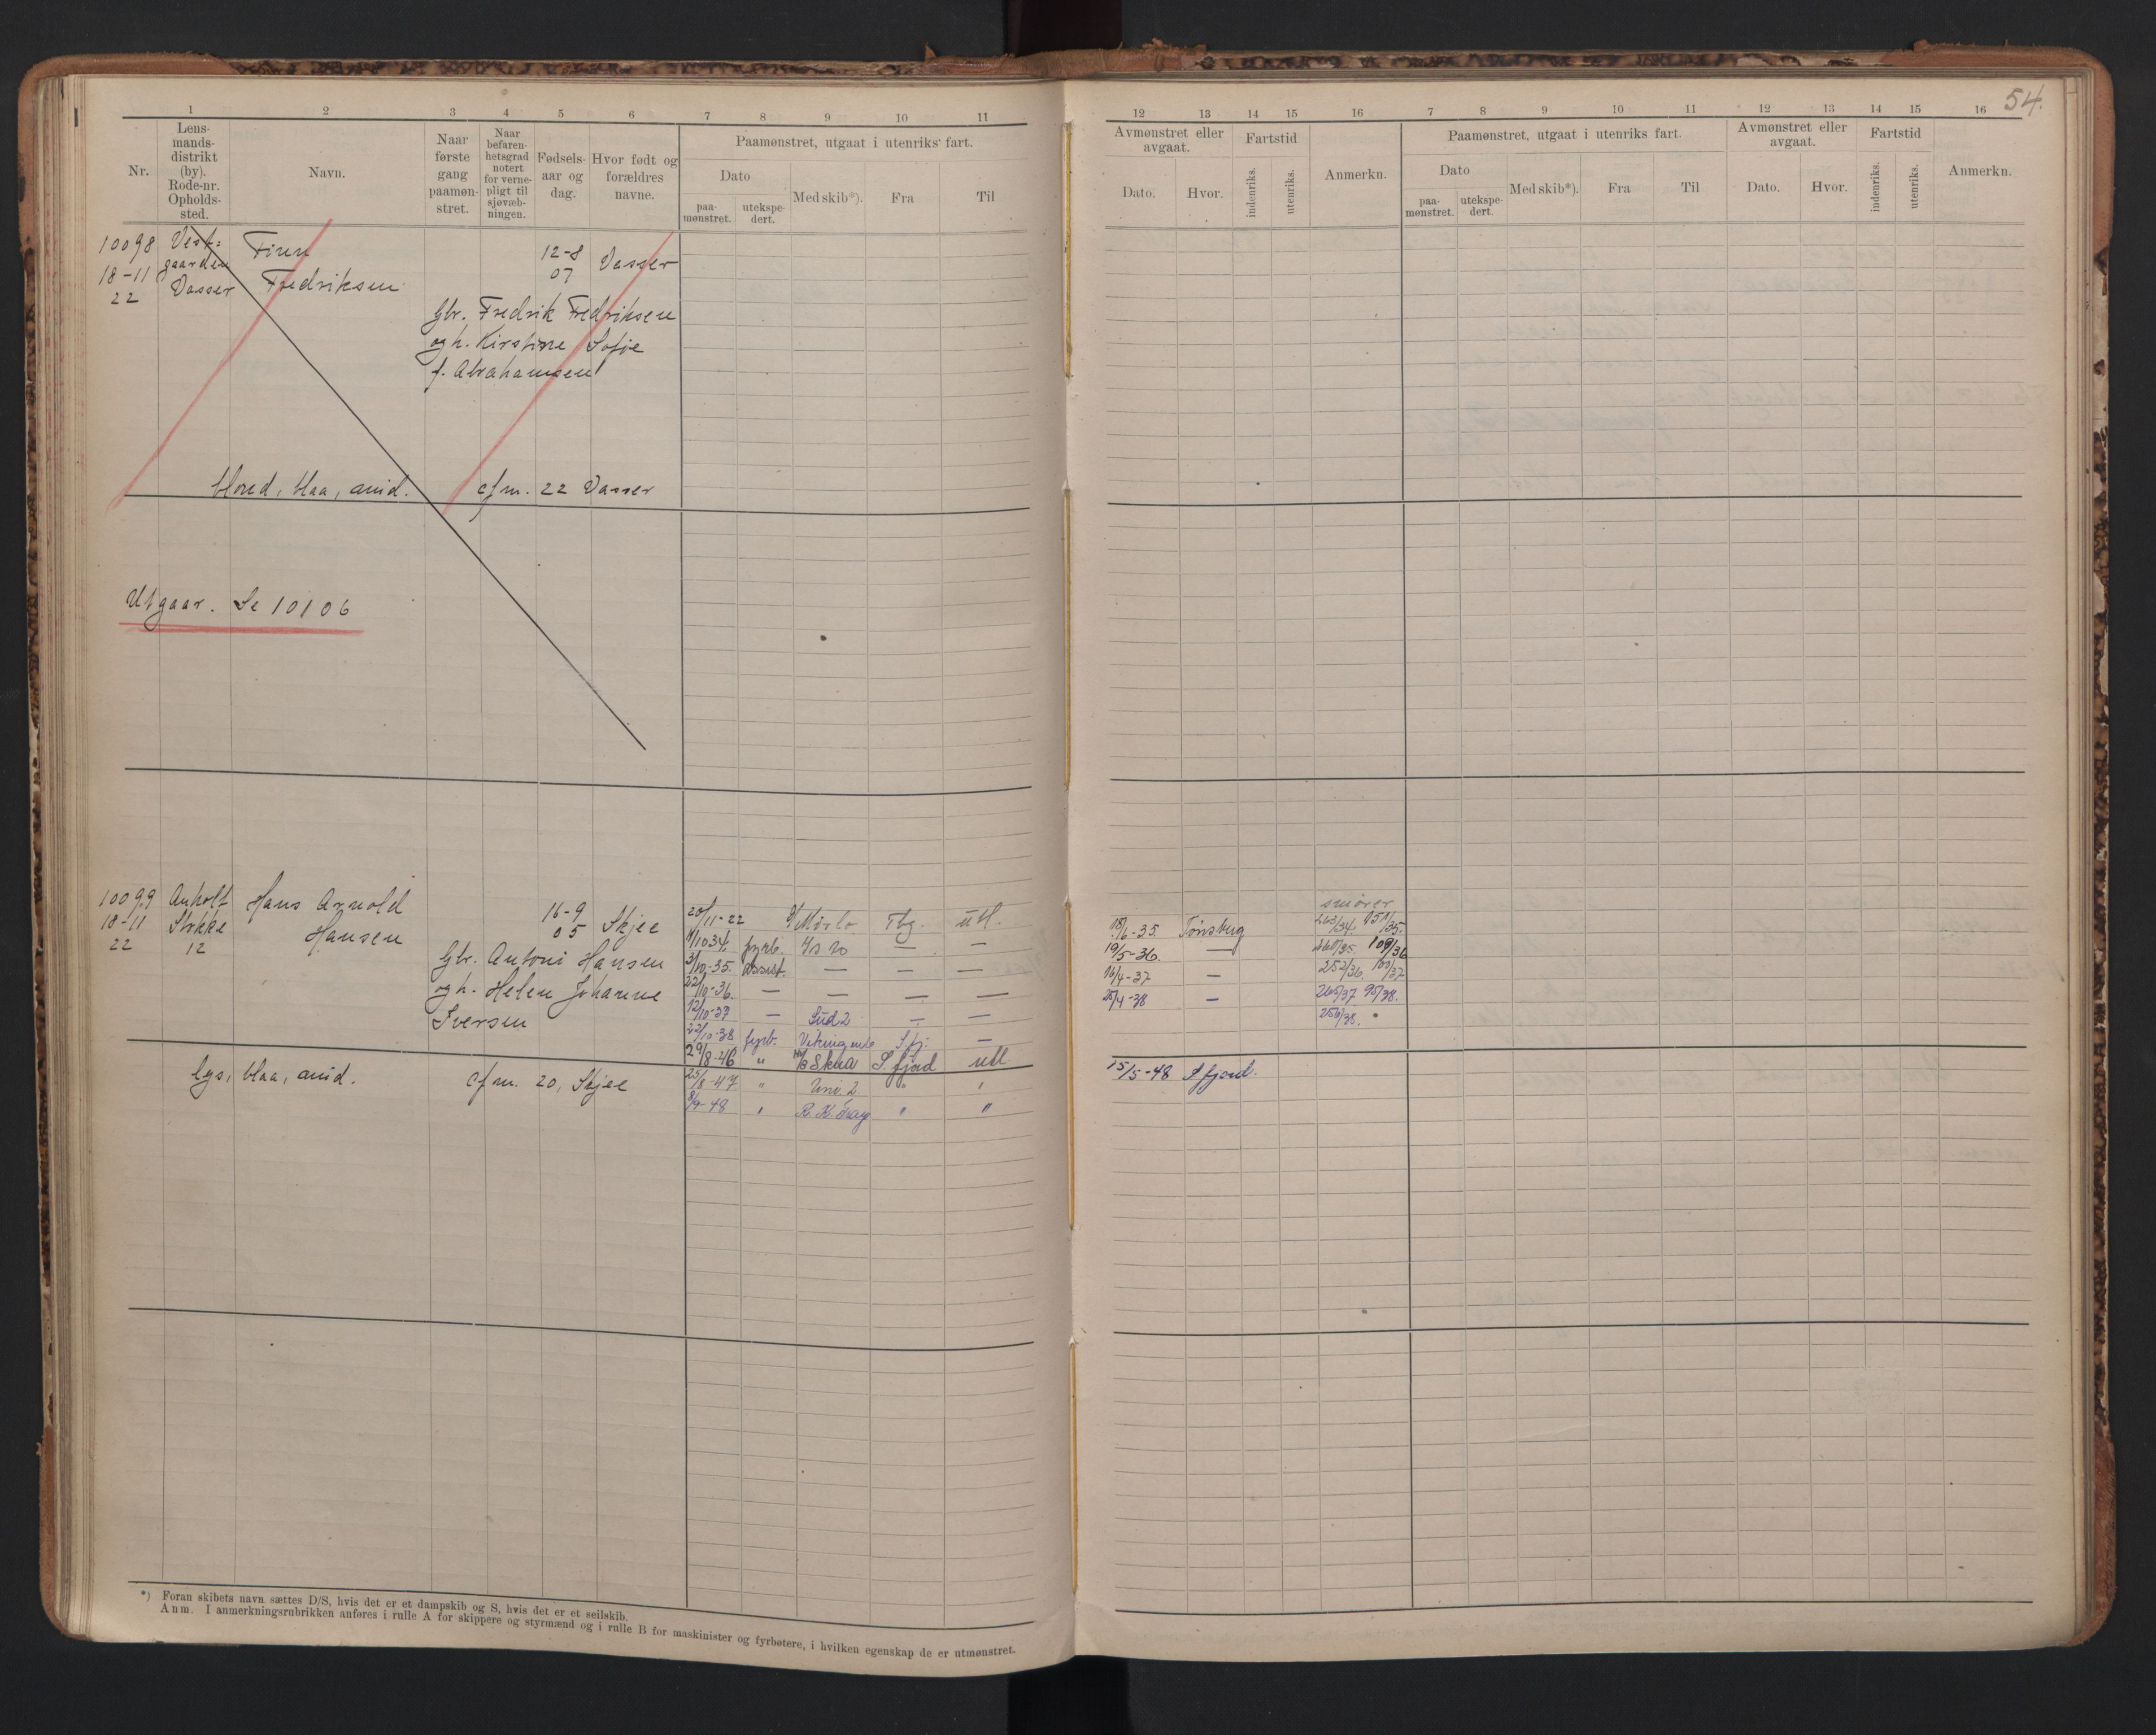 54.
1 2 3 4 5 6 7 8 9 10 11
Nr.
Lens-
mands-
distrikt
(by).
Rode-nr.
Opholds-
sted.
Navn.
Naar
første
gang
paamøn-
stret.
Naar
befaren-
hetsgrad
notert
for verne-
pligt til
sjøvæb-
ningen.
Fødsels-
aar og
dag.
Hvor født og
forældres
navne.
Paamønstret, utgaat i utenriks fart.
Dato
paa-
mønstret.
utekspe-
dert.
Med skib*).
Fra
Til
12 13 14 15 16 7 8 9 10 11 12 13 14 15 16
Avmønstret eller
avgaat.
Dato.
Hvor.
Fartstid
indenriks.
utenriks.
Anmerkn.
Paamønstret, utgaat i utenriks fart.
Dato
paa-
mønstret.
utekspe-
dert.
Med skib*).
Fra
Til
Avmønstret eller
avgaat.
Dato.
Hvor.
Fartstid
indenriks.
utenriks.
Anmerkn.
10098 Vest- Finn 12-8 Vasser
18-11 gaarden Fredriksen 07
22 Vasser
Gbr. Fredrik Fredriksen
og h. Kirstine Sofie
f. Abrahamsen
blond, blaa, mid. cfm. 22 Vasser
Utgaar. Se 10106
10099 Anholt Hans Arnold 16-9 Skjee
18-11 Stokke Hansen 05
22 12
Gbr. Antoni Hansen
og h. Helen Johanne
Iversen
lys, blaa, mid. cfm. 20, Skjee
20/11-22 Tbg. utl.
1/10 34. fyrb. — —
3/10-35. assist. — — —
22/10-36. — — — —
12/10-37 — Süd 2 — —
22/10-38 fyrb. Vikingen Sfj. —
29/8-46 " Skua S. fjord utl.
25/8-47 " Uni. 2. " "
8/9-48 " " "
18/6-35. Tønsberg 263/34. 151/35.
19/5-36. — 260/35. 109/36
16/4-37 — 252/36. 100/37
25/4-38 — 265/37 95/38.
256/38.
15/5-48 Sfjord.
*) Foran skibets navn sættes D/S, hvis det er et dampskib og S, hvis det er et seilskib.
Anm. I anmerkningsrubrikken anføres i rulle A for skippere og styrmænd og i rulle B for maskinister og fyrbøtere, i hvilken egenskap de er utmønstret.